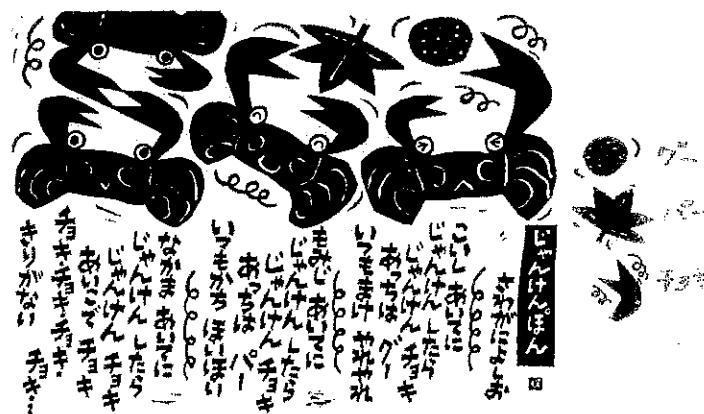 じゃんけんぽん
こいし あいてに
じゃんけん したら
じゃんけん チョキ
あっちは グー
いつも まけ
もみじ あいてに
じゃんけん したら
じゃんけん チョキ
あっちは パー
いつも かち
なかま あいてに
じゃんけん したら
じゃんけん チョキ
あいこで チョキ
チョキ・チョキ・チョキ・
きりがない チョキ・
グー
パー
チョキ